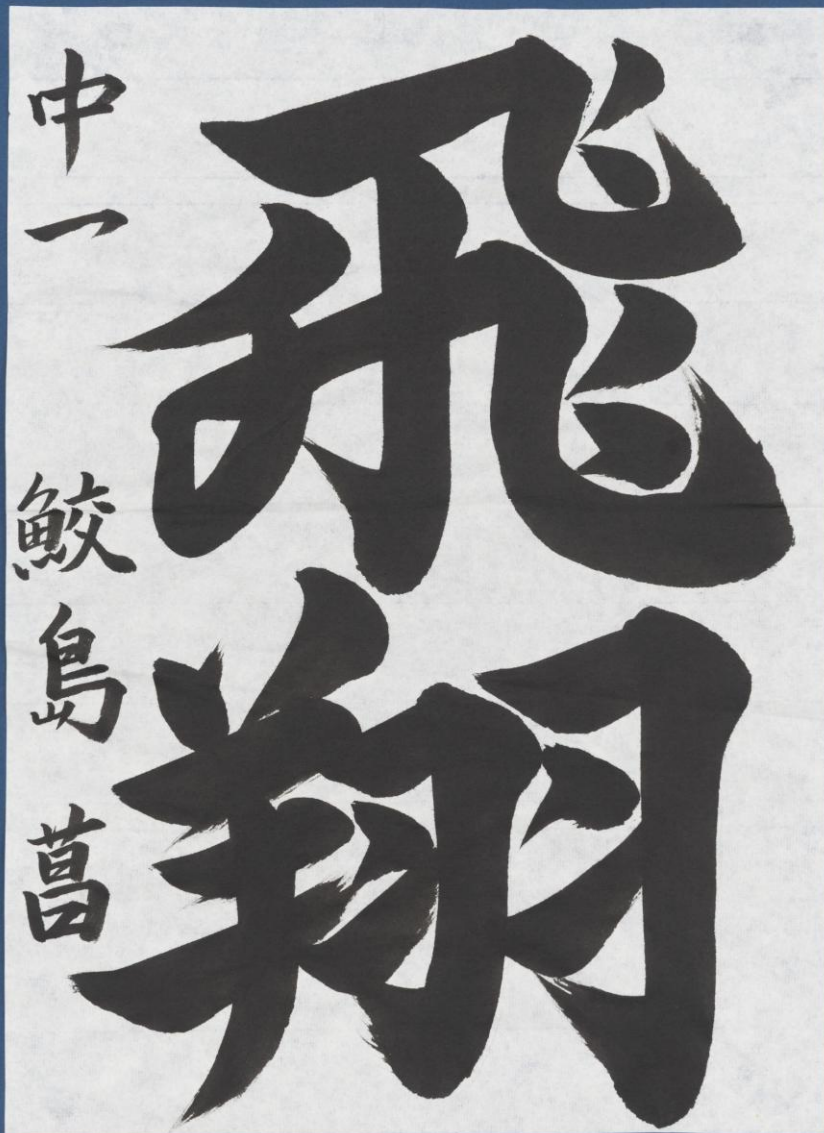 飛翔
中一 鮫島菖